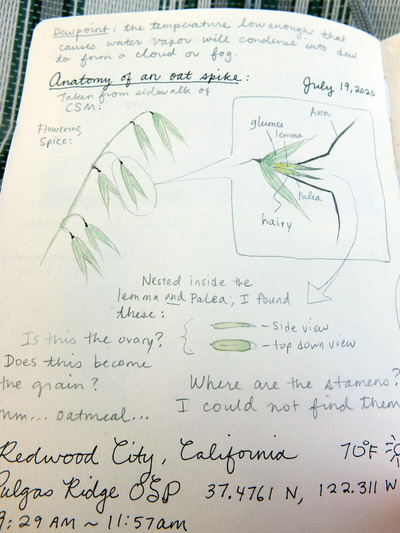 Dewpoint: the temperature low enough that
causes water vapor will condense into dew
to form a cloud or fog.
Anatomy of an oat spike:
July 19, 2020
Taken from sidewalk of
CSM:
Flowering
Spike:
Awn
glumes
lemma
Palea
hairy
Nested inside the
lemma and Palea, I found
these:
- Side view
- top down view
Is this the ovary?
Does this become
the grain?
mm... oatmeal...
Where are the stamens?
I could not find them
Redwood City, California
70°F
Pulgas Ridge OSP 37.4761 N, 122.311 W
9:29 AM ~ 11:57am